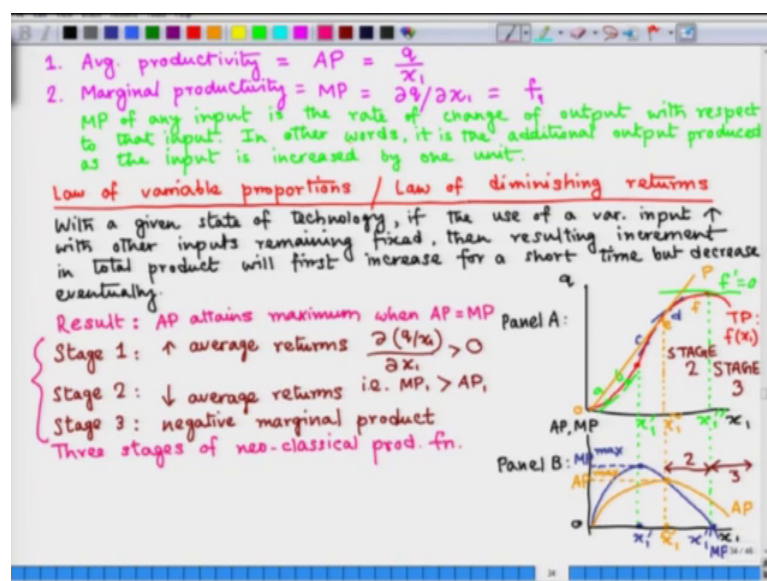 1. Avg. productivity = AP = q/x₁
2. Marginal productivity = MP = ∂q/∂x₁ = f₁
MP of any input is the rate of change of output with respect
to that input. In other words, it is the additional output produced
as the input is increased by one unit.
Law of variable proportions / Law of diminishing returns
With a given state of technology, if the use of a var. input ↑
with other inputs remaining fixed, then resulting increment
in total product will first increase for a short time but decrease
eventually.
Result: AP attains maximum when AP = MP
Stage 1: ↑ average returns ∂(q/x₁)/∂x₁ > 0
i.e. MP₁ > AP₁
Stage 2: ↓ average returns
Stage 3: negative marginal product
Three stages of neo-classical prod. fn.
Panel A:
q
P
f'=0
a
b
c
d
e
f
TP:
f(x₁)
STAGE
2
STAGE
3
0
x₁'
x₁''
x₁'''
x₁
AP, MP
Panel B:
MP max
AP max
2
3
AP
0
x₁'
x₁''
x₁'''
x₁
MP
34/46
34